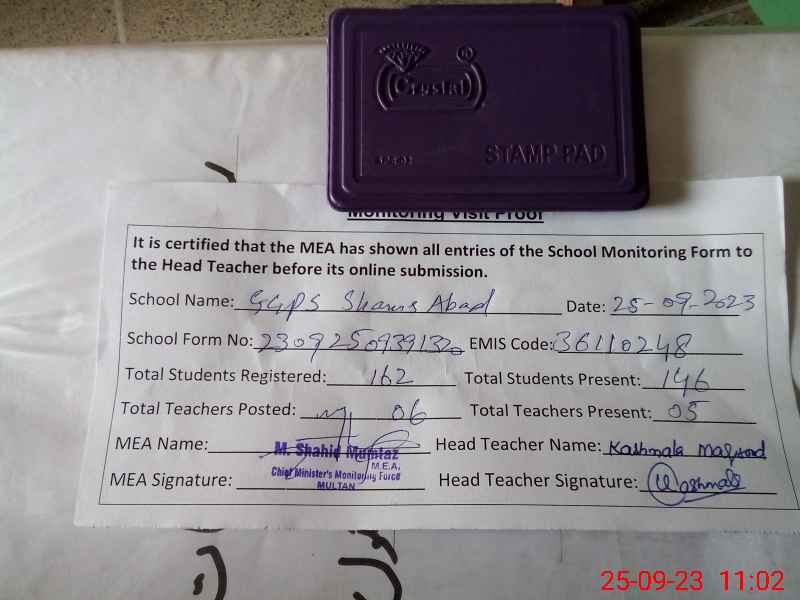 Crystal
STAMP PAD
Monitoring Visit Proof
It is certified that the MEA has shown all entries of the School Monitoring Form to
the Head Teacher before its online submission.
School Name: GGPS Shams Abad Date: 25-09-2023
School Form No: EMIS Code: 36110248
Total Students Registered: 162 Total Students Present: 146
Total Teachers Posted: 06 Total Teachers Present: 05
MEA Name: M. Shahid Mumtaz Head Teacher Name: Kashmala Maqsood
M.E.A.
Chief Minister's Monitoring Force
MULTAN
MEA Signature: Head Teacher Signature: Kashmala
25-09-23 11:02